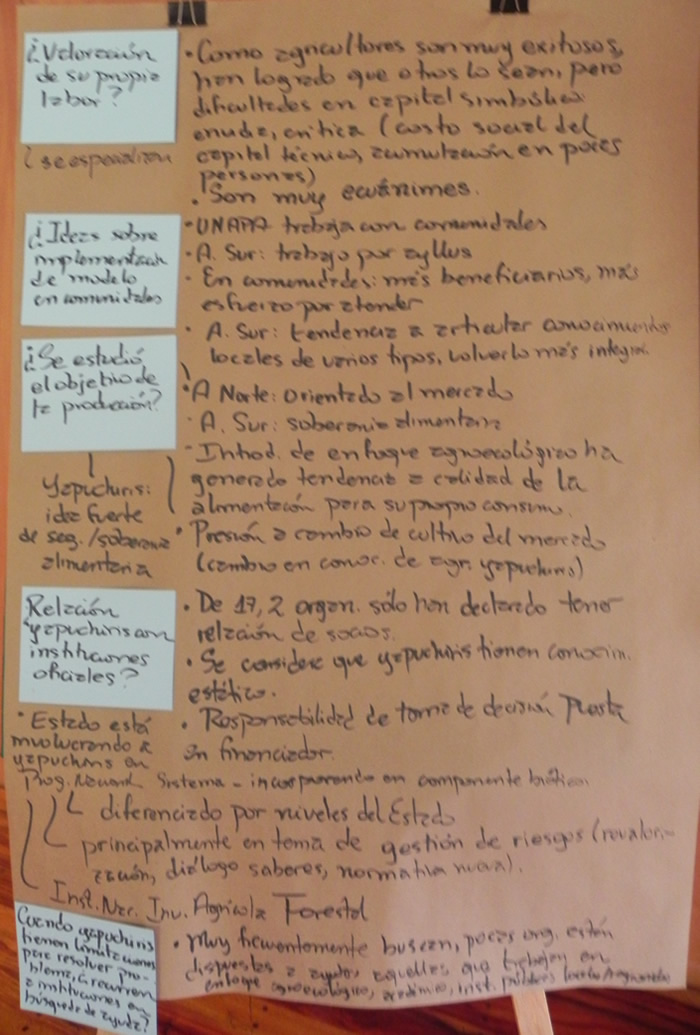 ¿Valoración
de su propia
labor?
• Como agricultores son muy exitosos,
han logrado que otros lo sean, pero
dificultades en capital simbólico:
envidia, crítica (costo social del
capital técnico, acumulación en pocas
personas)
(se especializan
• Son muy ecuánimes.
¿Ideas sobre
implementación
de modelo
en comunidades
- UNAPA trabaja con comunidades
• A. Sur: trabajo por ayllus
- En comunidades: más beneficiarios, más
esfuerzo por atender
• A. Sur: tendencia a articular conocimientos
locales de varios tipos, volverlo más integral.
¿Se estudió
el objetivo de
la producción?
• A Norte: Orientado al mercado
- A. Sur: soberanía alimentaria
- Introd. de enfoque agroecológico ha
generado tendencia a calidad de la
alimentación para su propio consumo.
Yapuchiris:
idea fuerte
de seg./soberanía
alimentaria
• Presión a cambio de cultivo del mercado
(cambio en conoc. de agr. yapuchiris)
Relación
yapuchiris con
instituciones
oficiales?
• De 17, 2 organ. sólo han declarado tener
relación de socios.
• Se considera que yapuchiris tienen conocim.
estático.
• Responsabilidad de toma de decisión
en financiador.
• Estado está
involucrando a
yapuchiris en
Prog. Sistema - incorporando en componente
diferenciado por niveles del Estado
principalmente en tema de gestión de riesgos (revalori-
zación, diálogo saberes, normativa nueva).
Inst. Nac. Inv. Agrícola Forestal
Cuando yapuchiris
tienen limitaciones
para resolver pro-
blema, ¿recurren
a instituciones en
búsqueda de ayuda?
• Muy frecuentemente buscan, pocas org. están
dispuestas a ayudar, aquellas que trabajan en
enfoque agroecológico, académico, inst. públicas